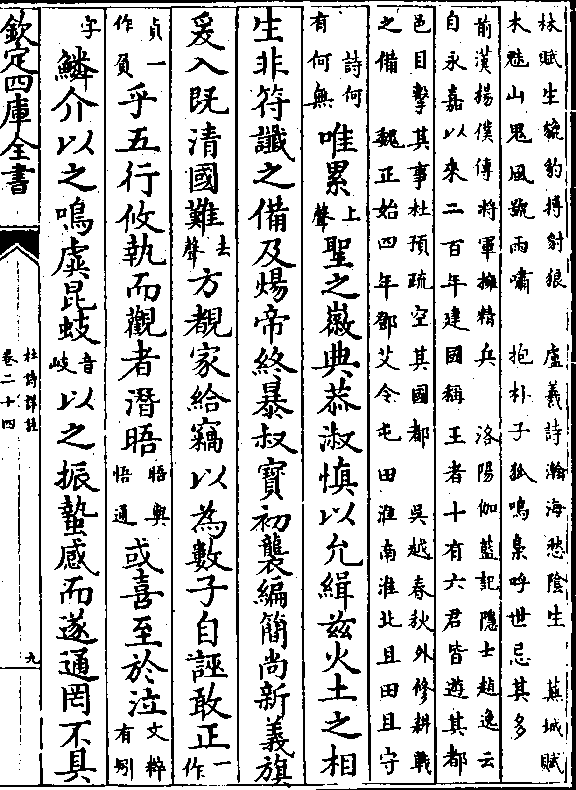 林賦生貔豹搏豺狼　盧羲詩瀚海愁陰生　蕪城賦
木魅山鬼風號雨嘯　抱朴子狐鳴梟呼世忌其多
前漢楊僕傳將軍擁精兵　洛陽伽藍記隱士趙逸云
自永嘉以來二百年建國稱王者十有六君皆遊其都
邑目擊其事杜預疏空其國都　吳越春秋外修耕戰
之備　魏正始四年鄧艾令屯田淮南淮北且田且守
詩何
有何無
唯累
上
聲
聖之徽典恭淑慎以允緝兹火土之相
生非符讖之備及煬帝終暴叔寳初襲編簡尚新義旗
爰入既清國難
去
聲
方覩家給竊以為數子自誣敢正
一
作
貞一
作負
乎五行攸執而觀者潛晤
晤與
悟通
或喜至於泣
文粹
有矧
字
鱗介以之鳴虡昆蚑
音
岐
以之振蟄感而遂通罔不具
欽定四庫全書
杜詩詳註
卷二十四
九